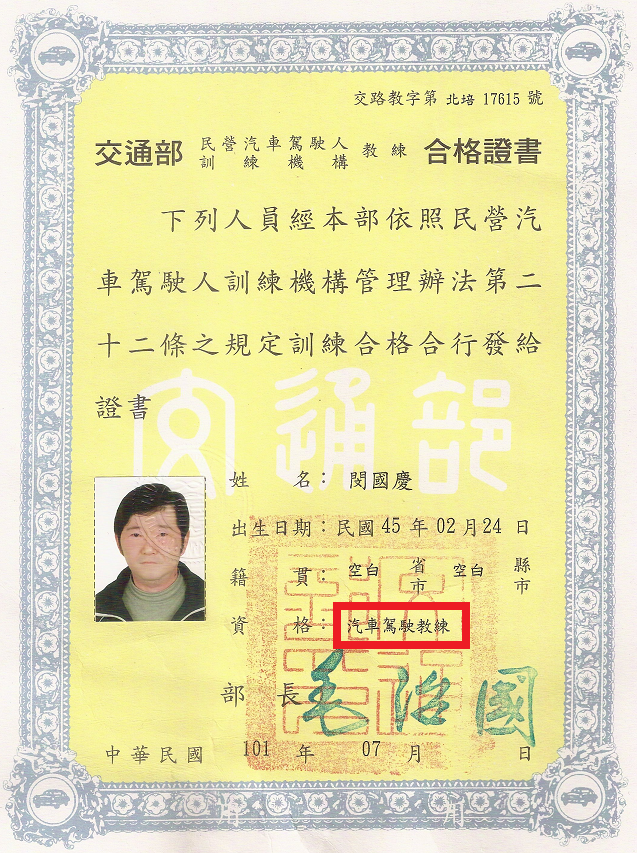 交路教字第 北培 17615 號
交通部 民營汽車駕駛人訓練機構 教練 合格證書
下列人員經本部依照民營汽
車駕駛人訓練機構管理辦法第二
十二條之規定訓練合格合行發給
證書
交通部
姓名：閔國慶
出生日期：民國 45 年 02 月 24 日
籍貫：空白 省市 空白 縣市
資格：汽車駕駛教練
部長 毛治國
中華民國 101 年 07 月 日